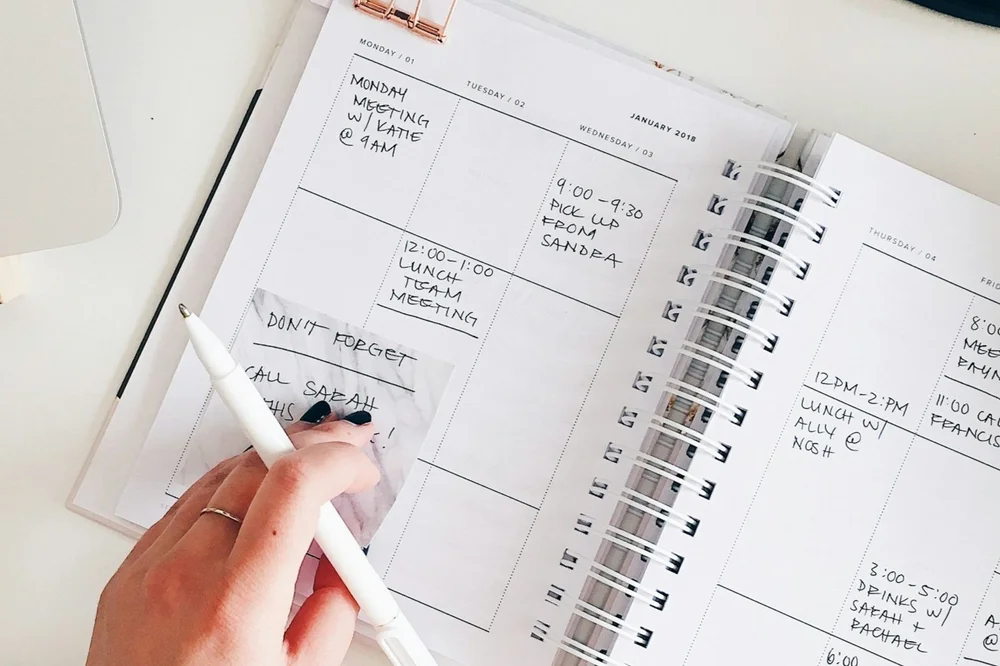 JANUARY 2018
MONDAY / 01
MONDAY
MEETING
W/ KATIE
@ 9AM
TUESDAY / 02
12:00-1:00
LUNCH
TEAM
MEETING
WEDNESDAY / 03
9:00-9:30
PICK UP
FROM
SANDRA
DON'T FORGET
CALL SARAH
THURSDAY / 04
12PM-2:PM
LUNCH W/
ALLY @
NOSH
3:00-5:00
DRINKS W/
SARAH +
RACHAEL
6:00
11:00
FRANCIS